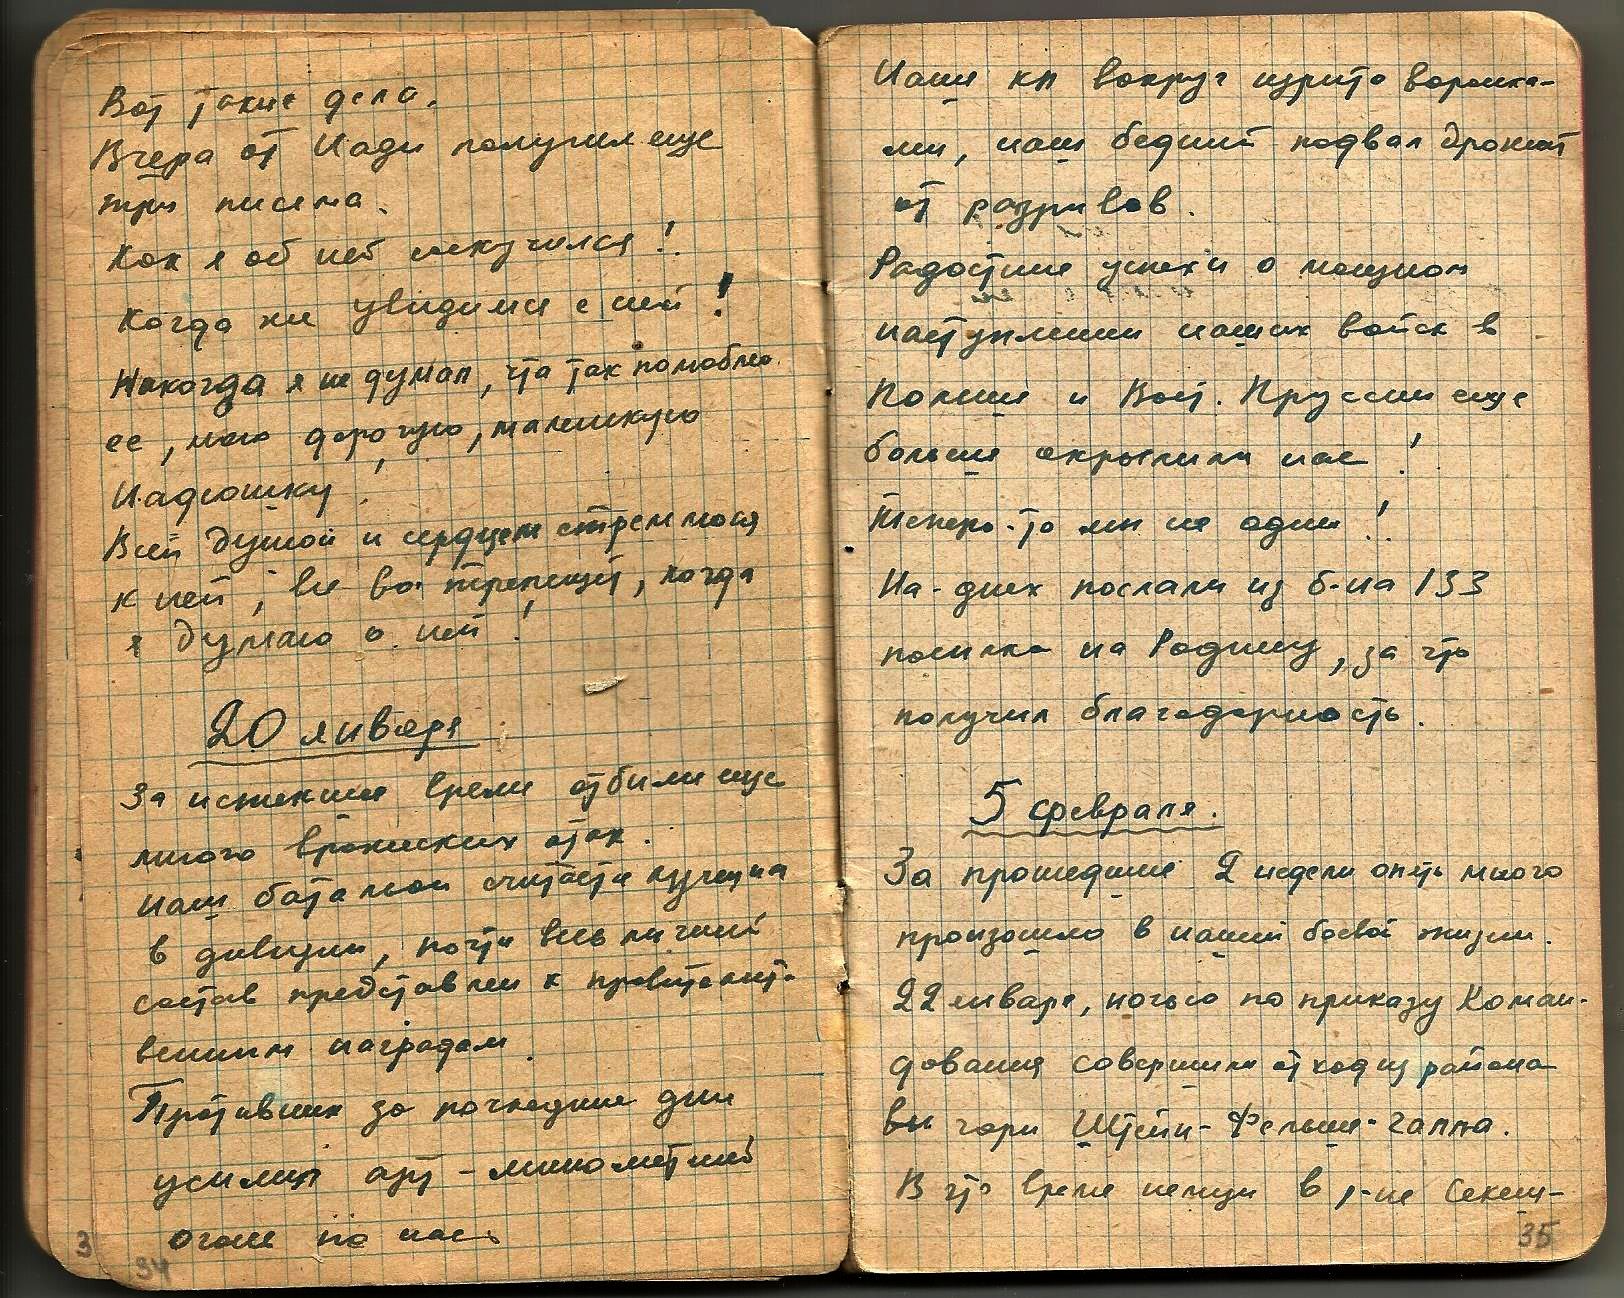 Вот такие дела.
Вчера от Нади получил еще
три письма.
Как я об ней соскучился!
Когда же увидимся с ней!
Никогда я не думал, что так полюблю
ее, мою дорогую, маленькую
Надюшку!
Всей душой и сердцем стремлюся
к ней, все во мне трепещет, когда
я думаю о ней!
20 января
За истекшее время отбили еще
много вражеских атак.
Наш батальон считается лучшим
в дивизии, почти весь личный
состав представлен к правительст-
венным наградам.
Противник за последние дни
усилил арт-минометный
огонь по нас.
34
Наше кп вокруг изрыто воронка-
ми, наш бедный подвал дрожит
от разрывов.
Радостные успехи о мощном
наступлении наших войск в
Польше и Вост. Пруссии еще
больше окрылили нас!
Теперь-то мы не одни!
На-днях послали из б-на 133
посылки на Родину, за что
получил благодарность.
5 февраля.
За прошедшие 2 недели опять много
произошло в нашей боевой жизни.
22 января, ночью по приказу Коман-
дования совершили отход из района
выс. горы Штейн-Фельше-галла.
В это время немцы в р-не Секеш-
35